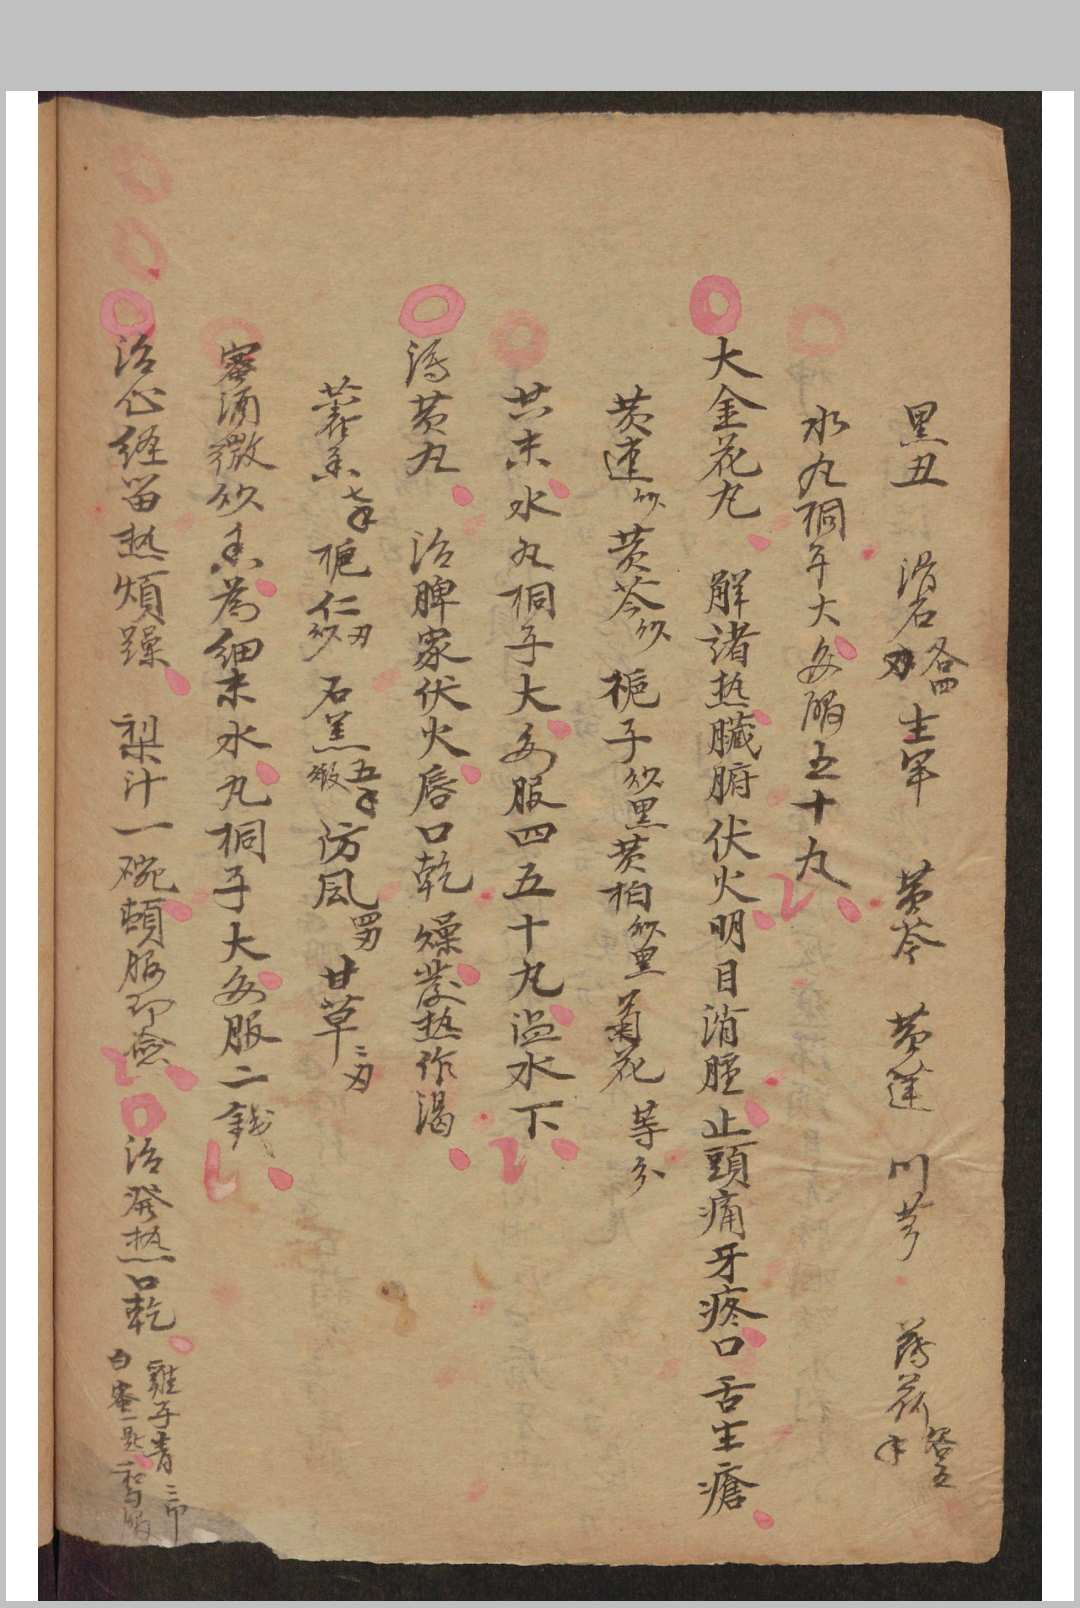 黑丑 滑石各四刃 主军 黄芩 黄莲 川芎 薄荷各五
水丸桐子大每服五十丸
大金花丸 解諸热臟腑伏火明目消腫止頭痛牙疼口舌生瘡
黄連炒 黄芩炒 梔子炒黑 黄柏炒黑 菊花 等分
共末水丸桐子大每服四五十丸温水下
瀉黄丸 治脾家伏火唇口乾燥發热作渴
藿香七 梔仁刃炒 石羔五煅 防風四刃 甘草二刃
蜜酒微炒香為細末水丸桐子大每服二錢
治心經畄热煩躁 梨汁一碗頓服即 治發热口乾 雞子青三
白蜜一匙和匀服